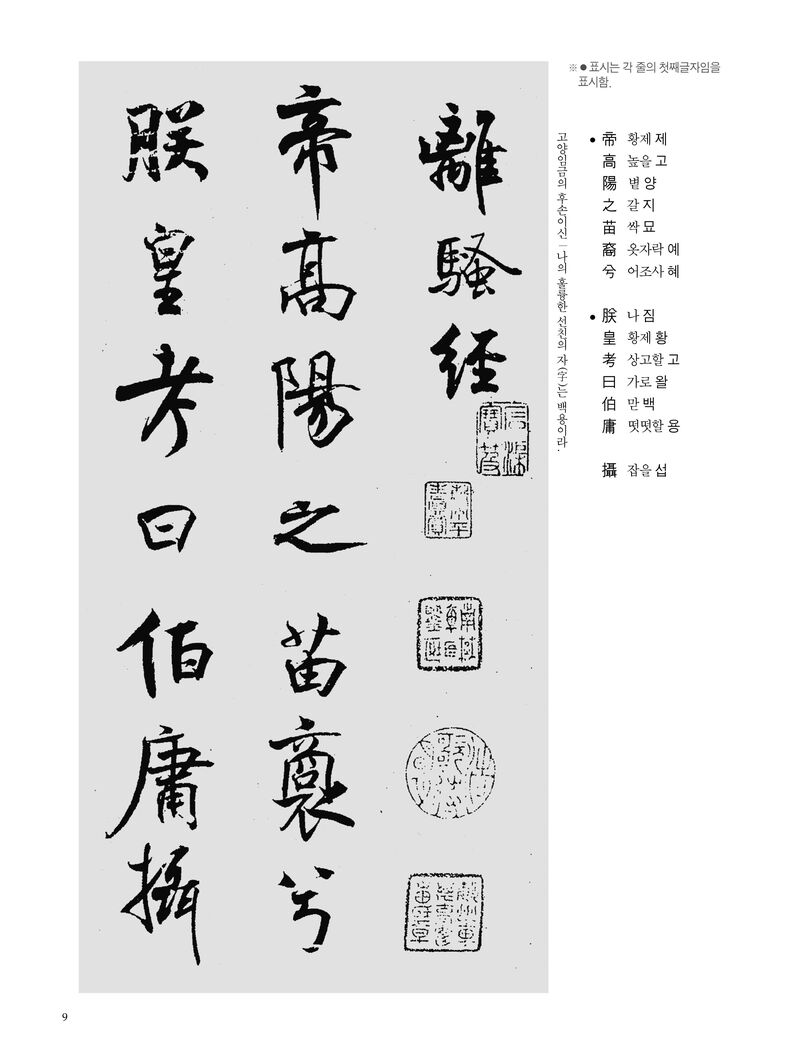 離騷經
帝高陽之苗裔兮
朕皇考曰伯庸攝
※ ● 표시는 각 줄의 첫째글자임을
표시함.
고양임금의 후손이신 ㅡ 나의 훌륭한 선친의 자(字)는 백용이라.
● 帝 황제 제
高 높을 고
陽 볕 양
之 갈 지
苗 싹 묘
裔 옷자락 예
兮 어조사 혜
● 朕 나 짐
皇 황제 황
考 상고할 고
曰 가로 왈
伯 맏 백
庸 떳떳할 용
攝 잡을 섭
9